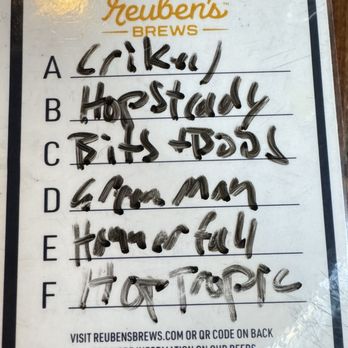 Reuben's
BREWS
A Crikey
B Hop Steady
C Bits + Bobs
D Green Man
E Hammerfall
F Hop Tropic
VISIT REUBENSBREWS.COM OR QR CODE ON BACK
INFORMATION ON OUR BEERS